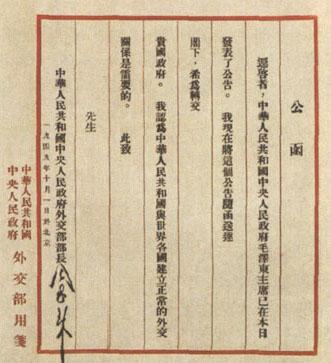 公函
逕啓者，中華人民共和國中央人民政府毛澤東主席已在本日
發表了公告。我現在將這個公告隨函送達
閣下，希爲轉交
貴國政府。我認爲中華人民共和國與世界各國建立正常的外交
關係是需要的。此致
先生
中華人民共和國中央人民政府外交部部長 周恩來
一九四九年十月一日於北京
中華人民共和國
中央人民政府
外交部用箋